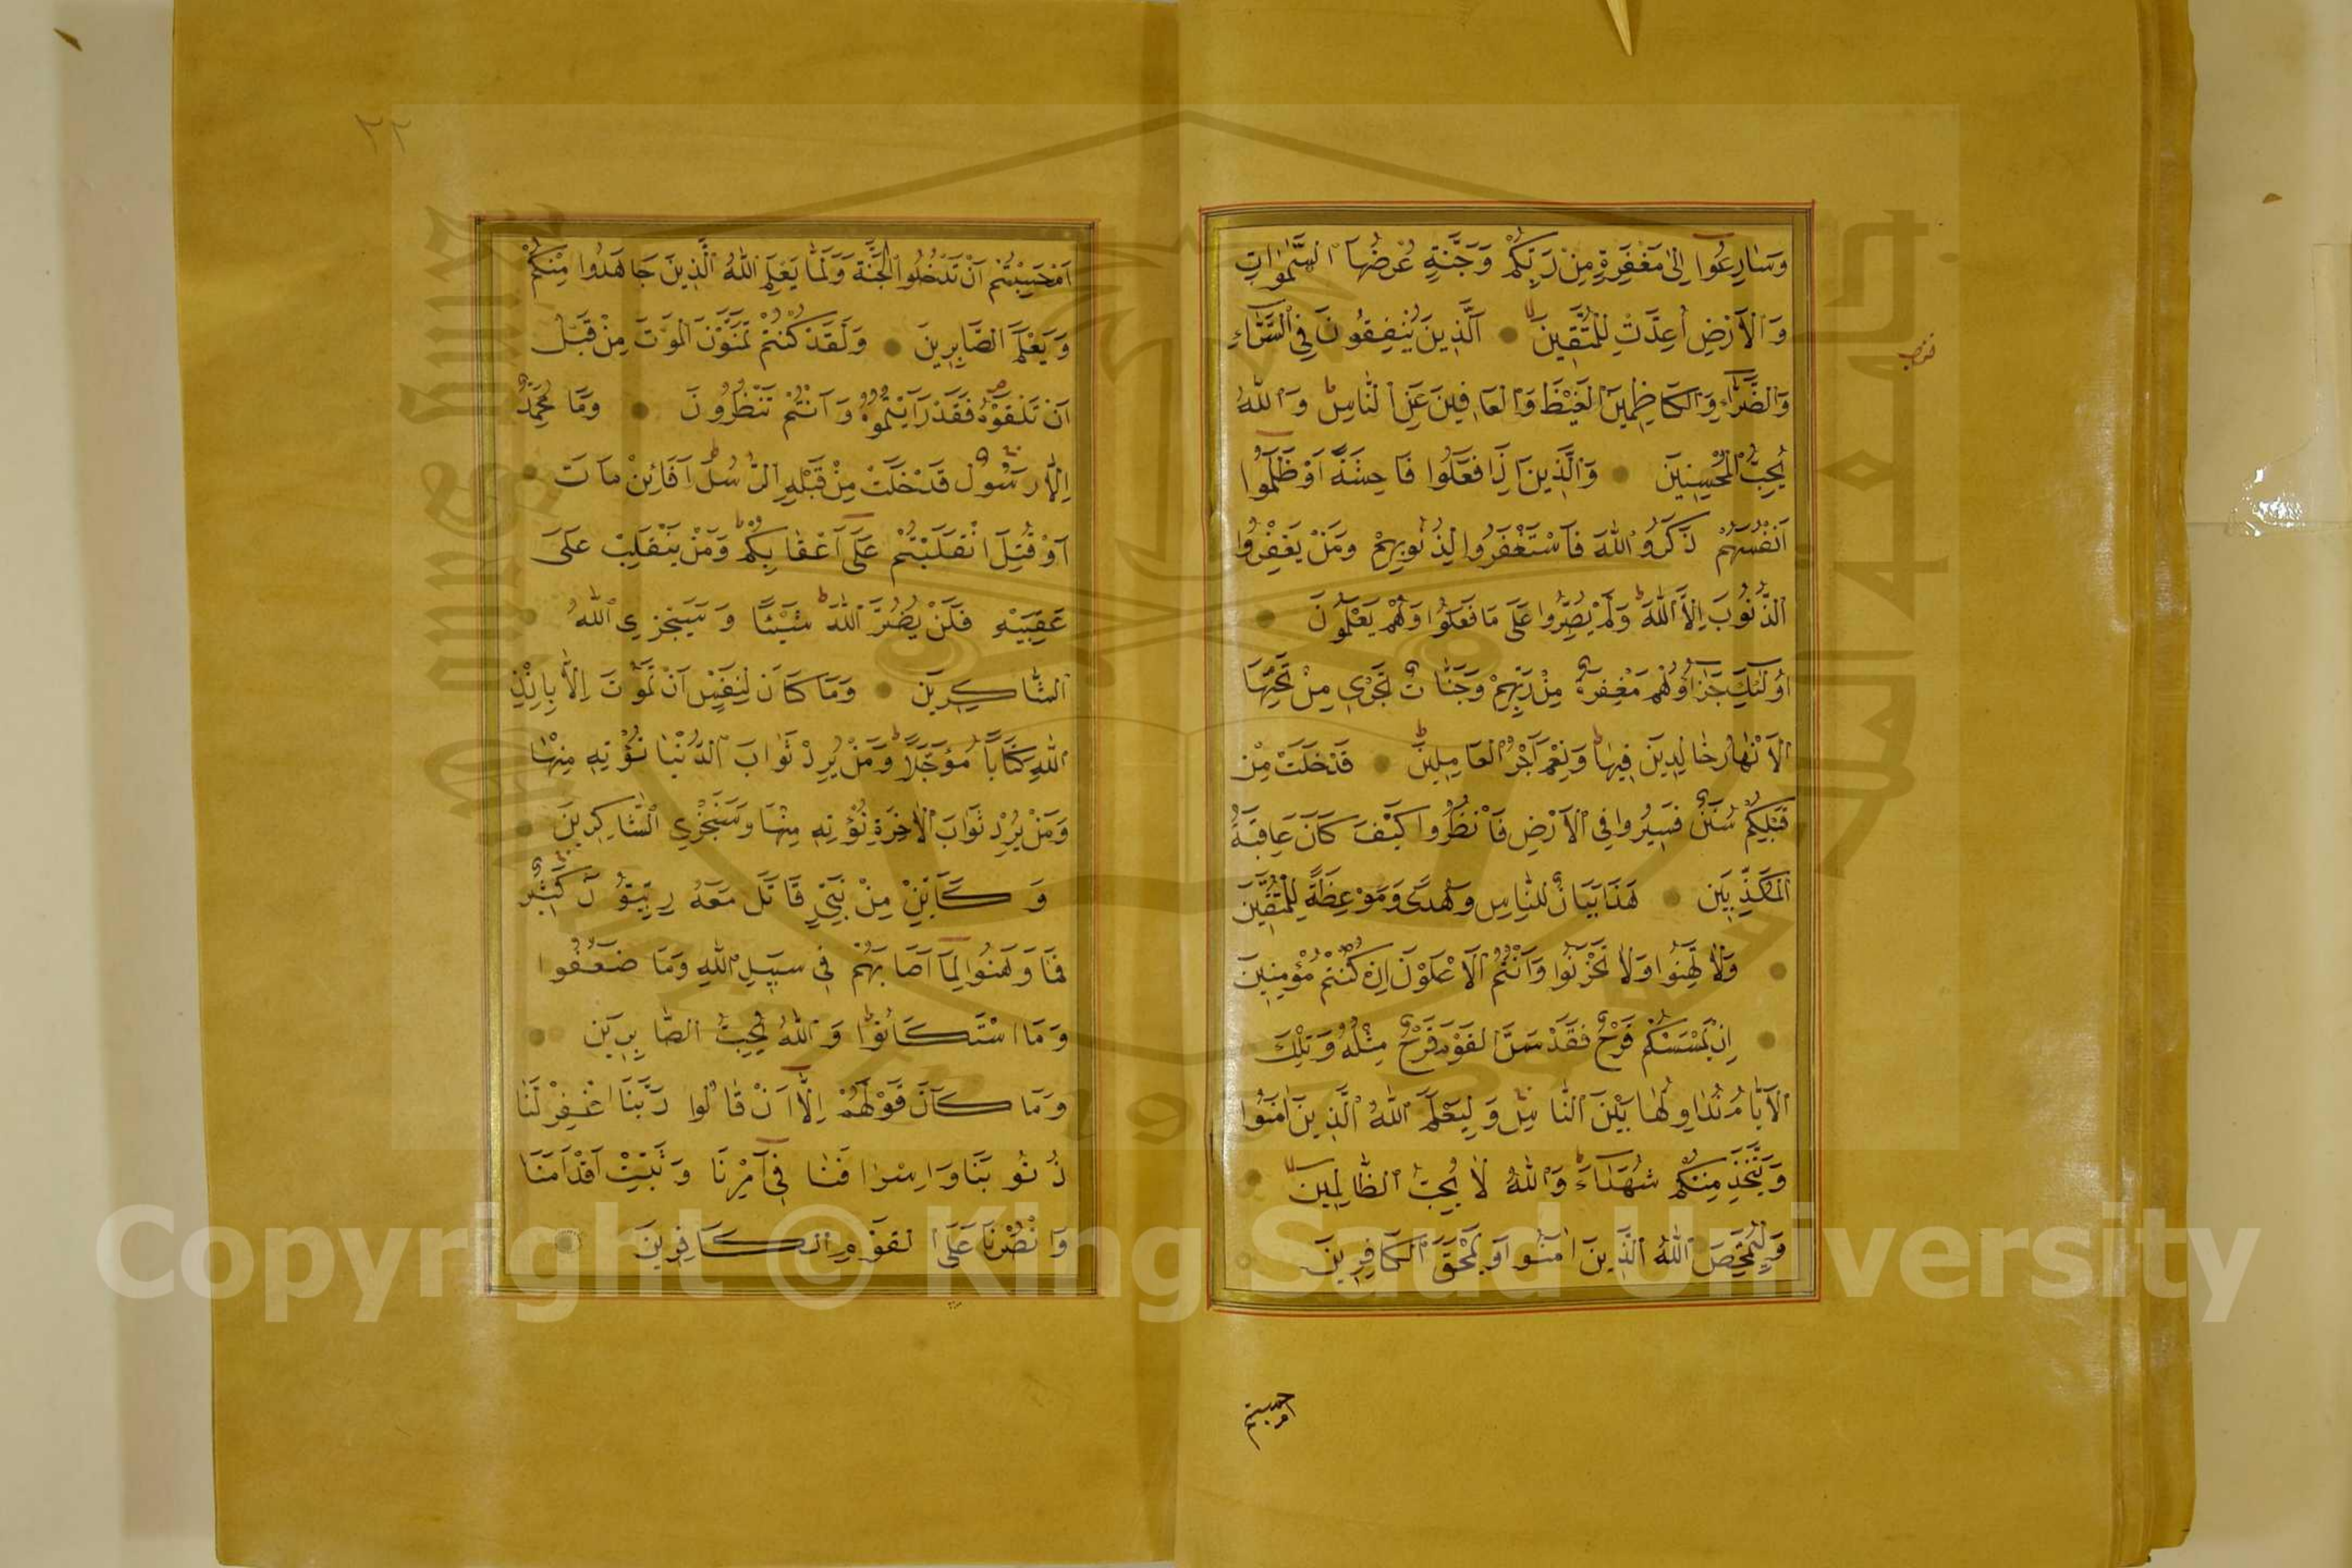 وَسَارِعُوا اِلٰى مَغْفِرَةٍ مِنْ رَبِّكُمْ وَجَنَّةٍ عَرْضُهَا السَّمٰوَاتِ
وَالْاَرْضِ اُعِدَّتْ لِلْمُتَّقِينَ الَّذِينَ يُنْفِقُونَ فِي السَّرَّاءِ
وَالضَّرَّاءِ وَالْكَاظِمِينَ الْغَيْظَ وَالْعَافِينَ عَنِ النَّاسِ وَاللّٰهُ
يُحِبُّ الْمُحْسِنِينَ وَالَّذِينَ اِذَا فَعَلُوا فَاحِشَةً اَوْ ظَلَمُوا
اَنْفُسَهُمْ ذَكَرُوا اللّٰهَ فَاسْتَغْفَرُوا لِذُنُوبِهِمْ وَمَنْ يَغْفِرُ
الذُّنُوبَ اِلَّا اللّٰهُ وَلَمْ يُصِرُّوا عَلٰى مَا فَعَلُوا وَهُمْ يَعْلَمُونَ
اُولٰئِكَ جَزَاؤُهُمْ مَغْفِرَةٌ مِنْ رَبِّهِمْ وَجَنَّاتٌ تَجْرِي مِنْ تَحْتِهَا
الْاَنْهَارُ خَالِدِينَ فِيهَا وَنِعْمَ اَجْرُ الْعَامِلِينَ قَدْ خَلَتْ مِنْ
قَبْلِكُمْ سُنَنٌ فَسِيرُوا فِي الْاَرْضِ فَانْظُرُوا كَيْفَ كَانَ عَاقِبَةُ
الْمُكَذِّبِينَ هٰذَا بَيَانٌ لِلنَّاسِ وَهُدًى وَمَوْعِظَةٌ لِلْمُتَّقِينَ
وَلَا تَهِنُوا وَلَا تَحْزَنُوا وَاَنْتُمُ الْاَعْلَوْنَ اِنْ كُنْتُمْ مُؤْمِنِينَ
اِنْ يَمْسَسْكُمْ قَرْحٌ فَقَدْ مَسَّ الْقَوْمَ قَرْحٌ مِثْلُهُ وَتِلْكَ
الْاَيَّامُ نُدَاوِلُهَا بَيْنَ النَّاسِ وَلِيَعْلَمَ اللّٰهُ الَّذِينَ اٰمَنُوا
وَيَتَّخِذَ مِنْكُمْ شُهَدَاءَ وَاللّٰهُ لَا يُحِبُّ الظَّالِمِينَ
وَلِيُمَحِّصَ اللّٰهُ الَّذِينَ اٰمَنُوا وَيَمْحَقَ الْكَافِرِينَ
ام حسبتم
٢٢
اَمْ حَسِبْتُمْ اَنْ تَدْخُلُوا الْجَنَّةَ وَلَمَّا يَعْلَمِ اللّٰهُ الَّذِينَ جَاهَدُوا مِنْكُمْ
وَيَعْلَمَ الصَّابِرِينَ وَلَقَدْ كُنْتُمْ تَمَنَّوْنَ الْمَوْتَ مِنْ قَبْلِ
اَنْ تَلْقَوْهُ فَقَدْ رَاَيْتُمُوهُ وَاَنْتُمْ تَنْظُرُونَ وَمَا مُحَمَّدٌ
اِلَّا رَسُولٌ قَدْ خَلَتْ مِنْ قَبْلِهِ الرُّسُلُ اَفَائِنْ مَاتَ
اَوْ قُتِلَ انْقَلَبْتُمْ عَلٰى اَعْقَابِكُمْ وَمَنْ يَنْقَلِبْ عَلٰى
عَقِبَيْهِ فَلَنْ يَضُرَّ اللّٰهَ شَيْئًا وَسَيَجْزِي اللّٰهُ
الشَّاكِرِينَ وَمَا كَانَ لِنَفْسٍ اَنْ تَمُوتَ اِلَّا بِاِذْنِ
اللّٰهِ كِتَابًا مُؤَجَّلًا وَمَنْ يُرِدْ ثَوَابَ الدُّنْيَا نُؤْتِهِ مِنْهَا
وَمَنْ يُرِدْ ثَوَابَ الْاٰخِرَةِ نُؤْتِهِ مِنْهَا وَسَنَجْزِي الشَّاكِرِينَ
وَكَاَيِّنْ مِنْ نَبِيٍّ قَاتَلَ مَعَهُ رِبِّيُّونَ كَثِيرٌ
فَمَا وَهَنُوا لِمَا اَصَابَهُمْ فِي سَبِيلِ اللّٰهِ وَمَا ضَعُفُوا
وَمَا اسْتَكَانُوا وَاللّٰهُ يُحِبُّ الصَّابِرِينَ
وَمَا كَانَ قَوْلَهُمْ اِلَّا اَنْ قَالُوا رَبَّنَا اغْفِرْ لَنَا
ذُنُوبَنَا وَاِسْرَافَنَا فِي اَمْرِنَا وَثَبِّتْ اَقْدَامَنَا
وَانْصُرْنَا عَلَى الْقَوْمِ الْكَافِرِينَ
Copyright © King Saud University